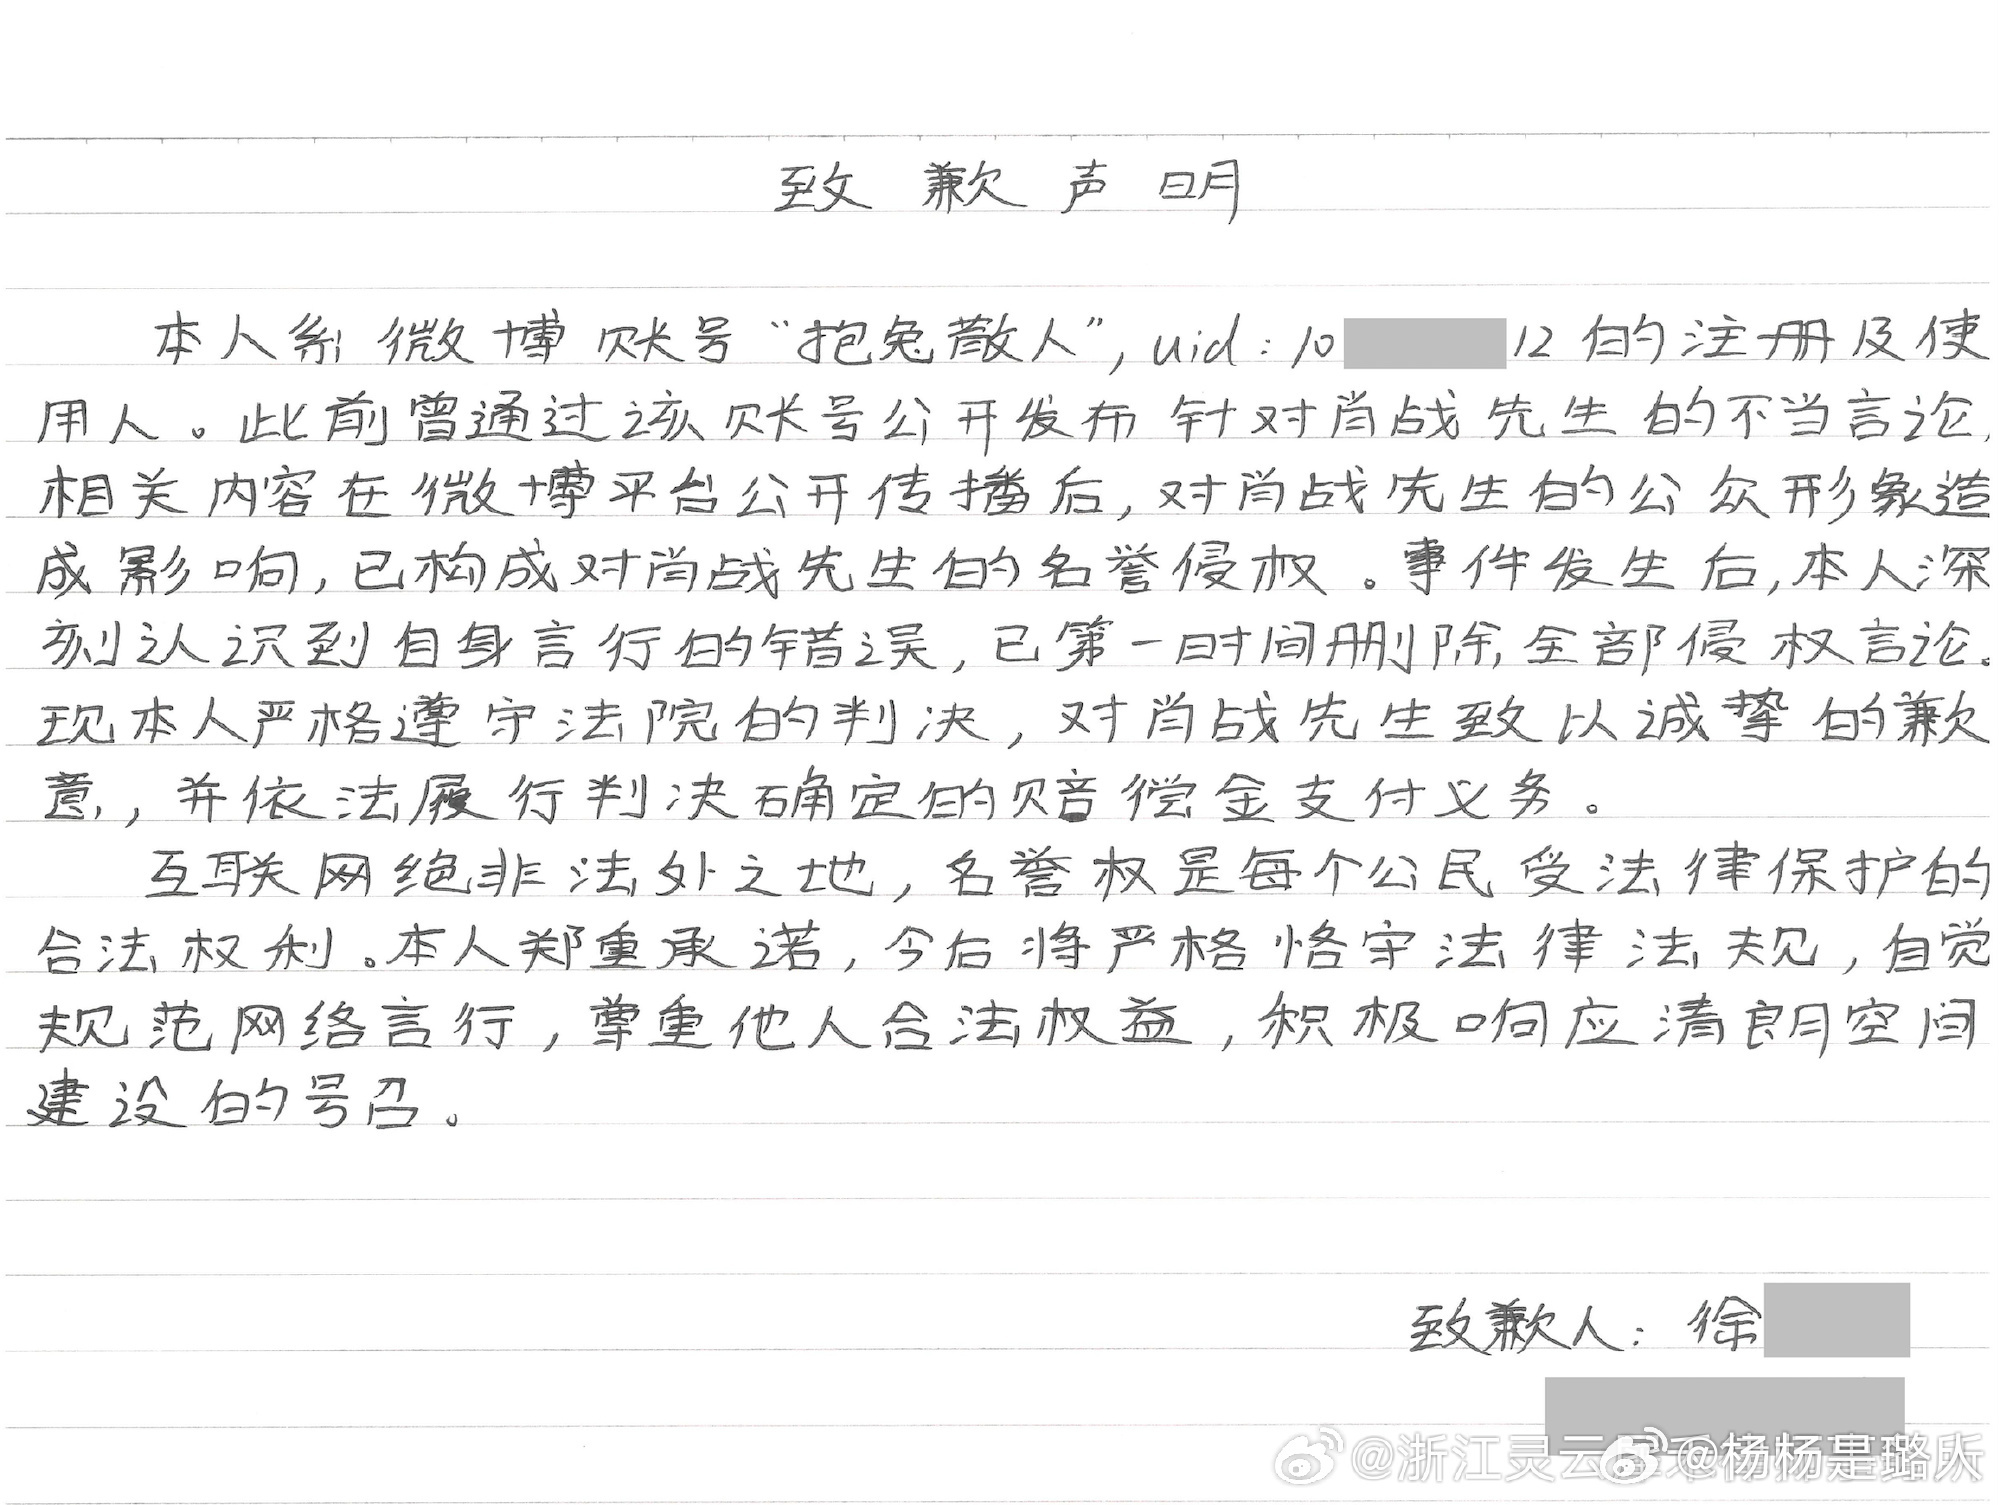 致歉声明
本人系微博账号“抱兔散人”，uid：10 12的注册及使
用人。此前曾通过该账号公开发布针对肖战先生的不当言论，
相关内容在微博平台公开传播后，对肖战先生的公众形象造
成影响，已构成对肖战先生的名誉侵权。事件发生后，本人深
刻认识到自身言行的错误，已第一时间删除全部侵权言论。
现本人严格遵守法院的判决，对肖战先生致以诚挚的歉
意，并依法履行判决确定的赔偿金支付义务。
互联网绝非法外之地，名誉权是每个公民受法律保护的
合法权利。本人郑重承诺，今后将严格恪守法律法规，自觉
规范网络言行，尊重他人合法权益，积极响应清朗空间
建设的号召。
致歉人：徐
@浙江灵云
@杨杨是璐